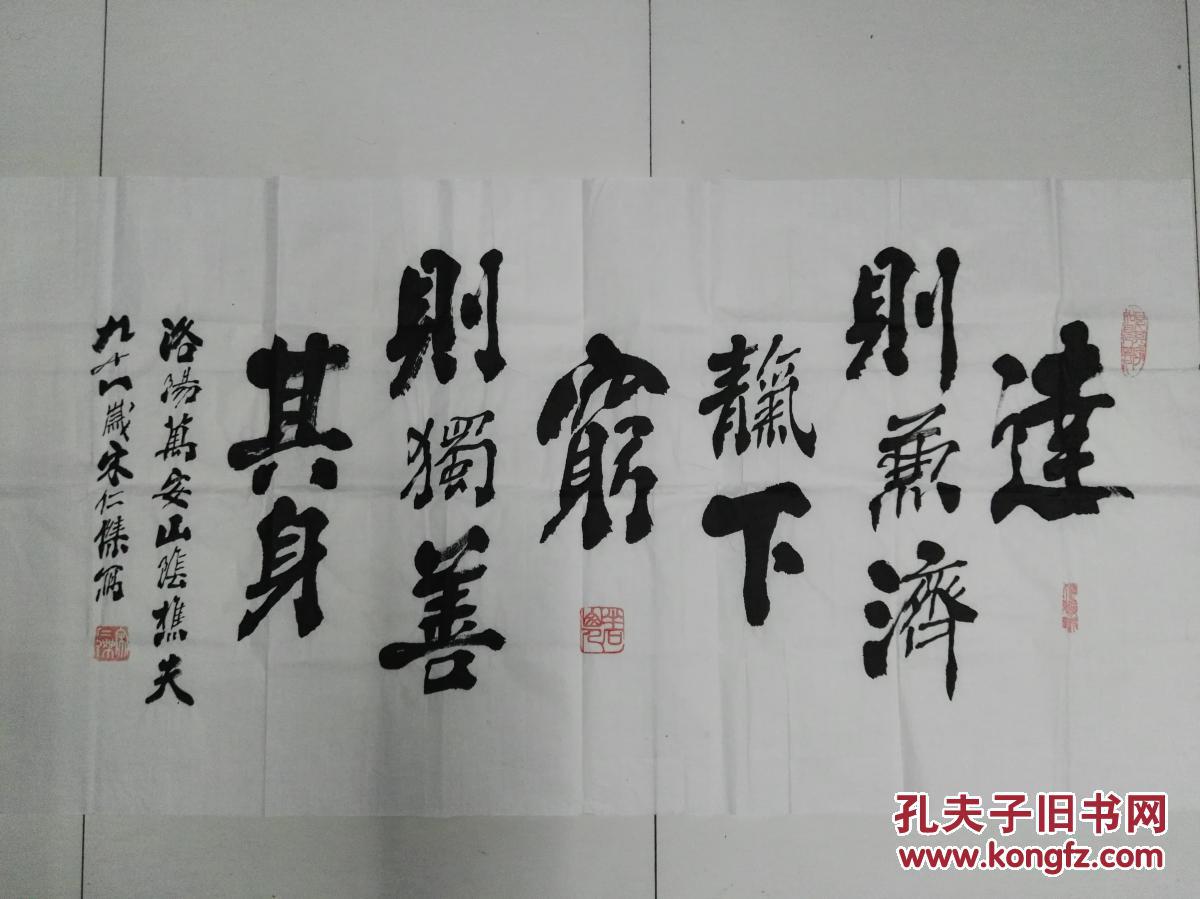 達
則兼濟
靝下
窮
則獨善
其身
洛陽萬安山陰樵夫
九十一歲宋仁傑寫
孔夫子旧书网
www.kongfz.com